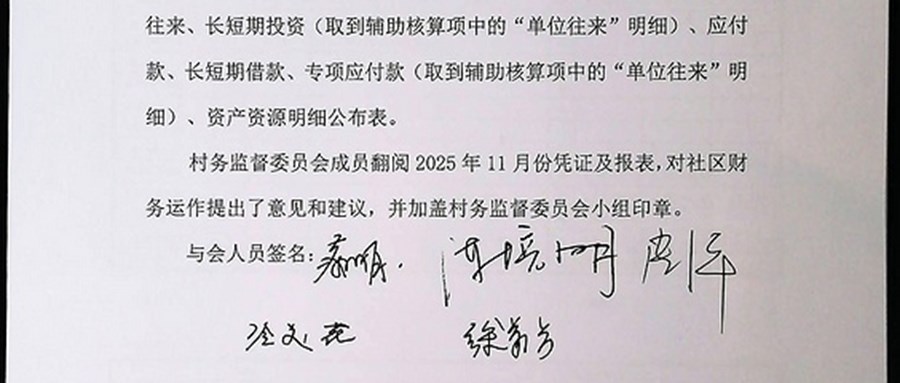 往来、长短期投资（取到辅助核算项中的“单位往来”明细）、应付
款、长短期借款、专项应付款（取到辅助核算项中的“单位往来”明
细）、资产资源明细公布表。
村务监督委员会成员翻阅 2025 年 11 月份凭证及报表，对社区财
务运作提出了意见和建议，并加盖村务监督委员会小组印章。
与会人员签名：